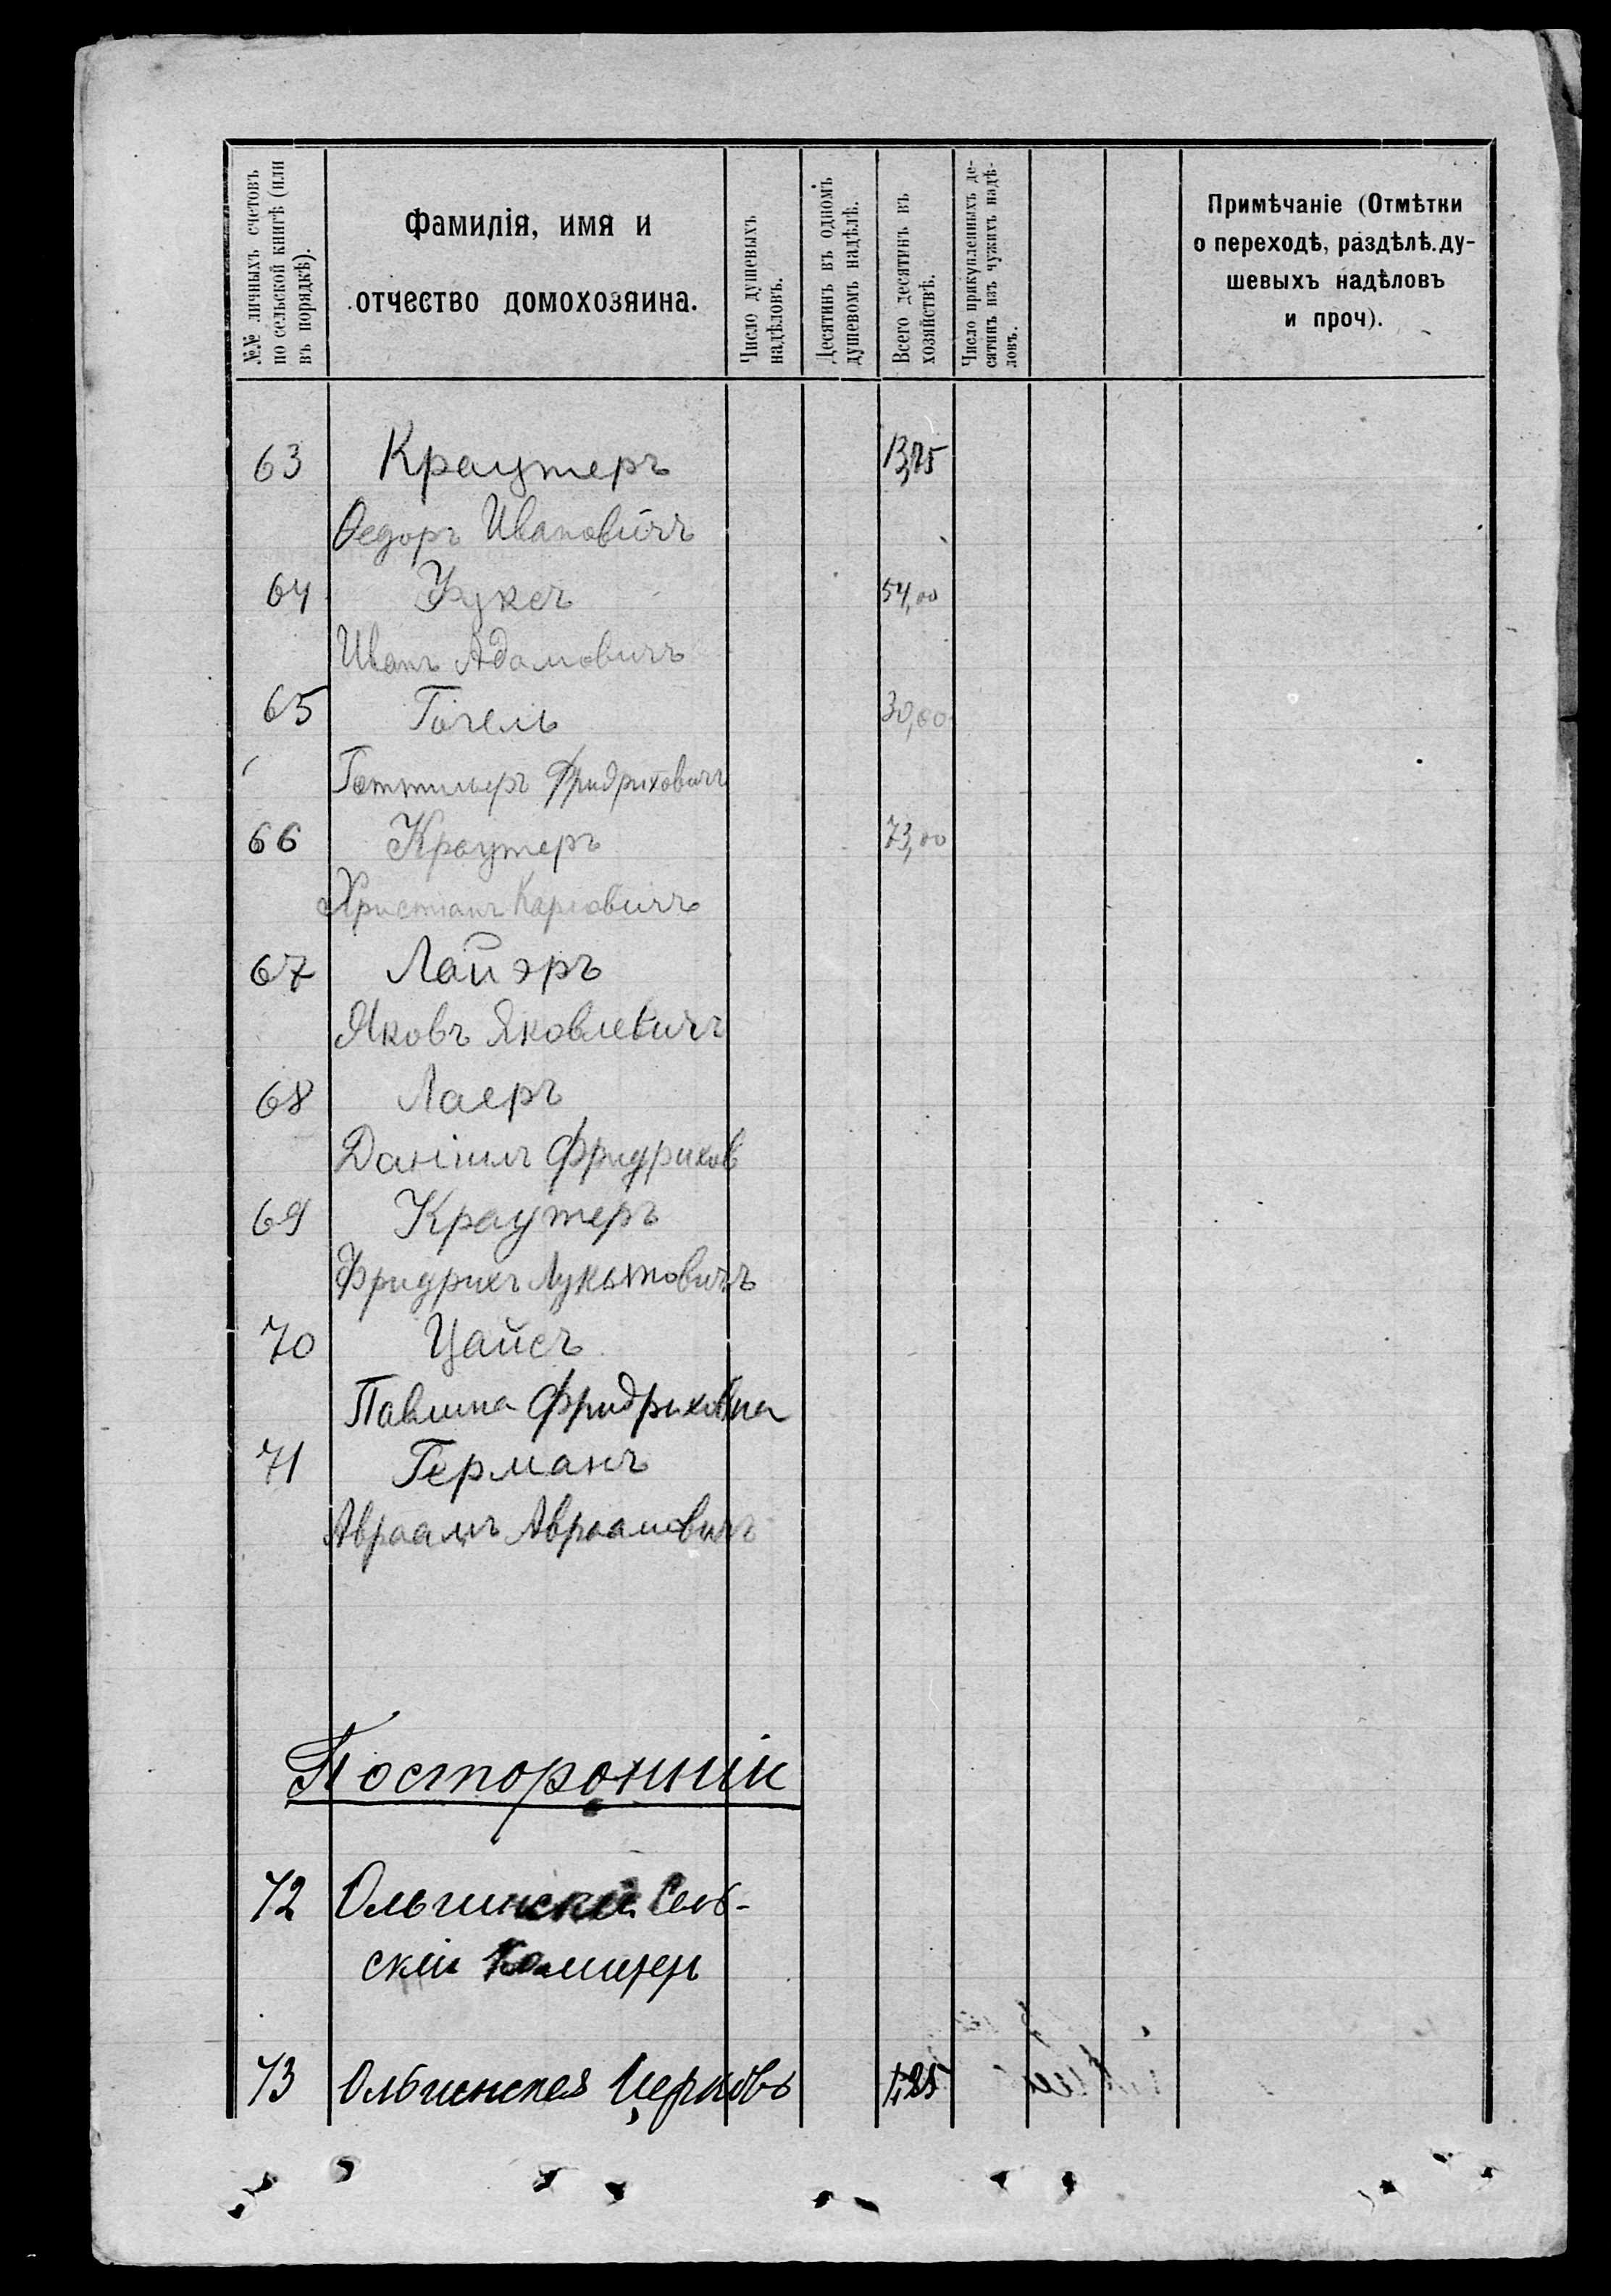 №№ личныхъ счетовъ
по сельской книгѣ (или
въ порядкѣ).
Фамилія, имя и
отчество домохозяина.
Число душевыхъ
надѣловъ.
Десятинъ въ одномъ
душевомъ надѣлѣ.
Всего десятинъ въ
хозяйствѣ.
Число прикупленныхъ де-
сятинъ изъ чужихъ надѣ-
ловъ.
Примѣчаніе (Отмѣтки
о переходѣ, раздѣлѣ ду-
шевыхъ надѣловъ
и проч).
63 Краутеръ
Ѳедоръ Ивановичъ
64 Фуксъ 54,00
Иванъ Адамовичъ
65 Гогель 30,00
Фридриховичъ
66 Краутеръ 73,00
Христіанъ Карловичъ
67 Лайэръ
Яковъ Яковлевичъ
68 Лаеръ
Даніилъ Фридрихов
69 Краутеръ
Фридрихъ
70 Цайсъ
Павлина Фридриховна
71 Германъ
Авраамъ Авраамовичъ
Посторонніи
72 Ольгинскій Сель-
скій
73 Ольгинская Церковь